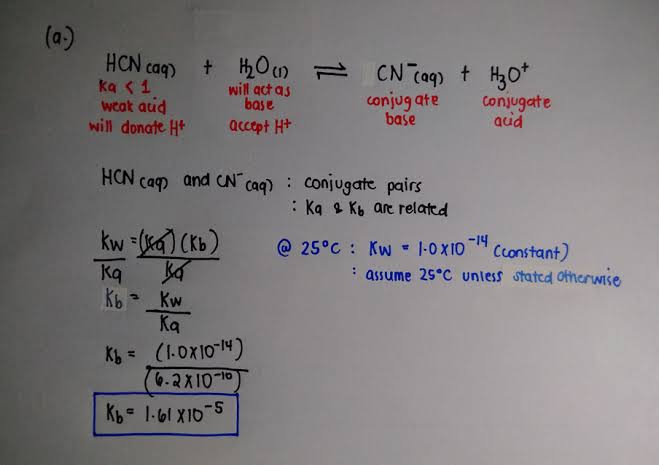 (a.)
HCN (aq) + H₂O (l) ⇌ CN⁻ (aq) + H₃O⁺
Ka < 1 will act as conjugate conjugate
weak acid base base acid
will donate H⁺ accept H⁺
HCN (aq) and CN⁻ (aq) : conjugate pairs
: Ka & Kb are related
Kw = (Ka) (Kb) @ 25°C : Kw = 1.0 X 10⁻¹⁴ (constant)
Ka Ka : assume 25°C unless stated otherwise
Kb = Kw
Ka
Kb = (1.0 X 10⁻¹⁴)
(6.2 X 10⁻¹⁰)
Kb = 1.61 X 10⁻⁵